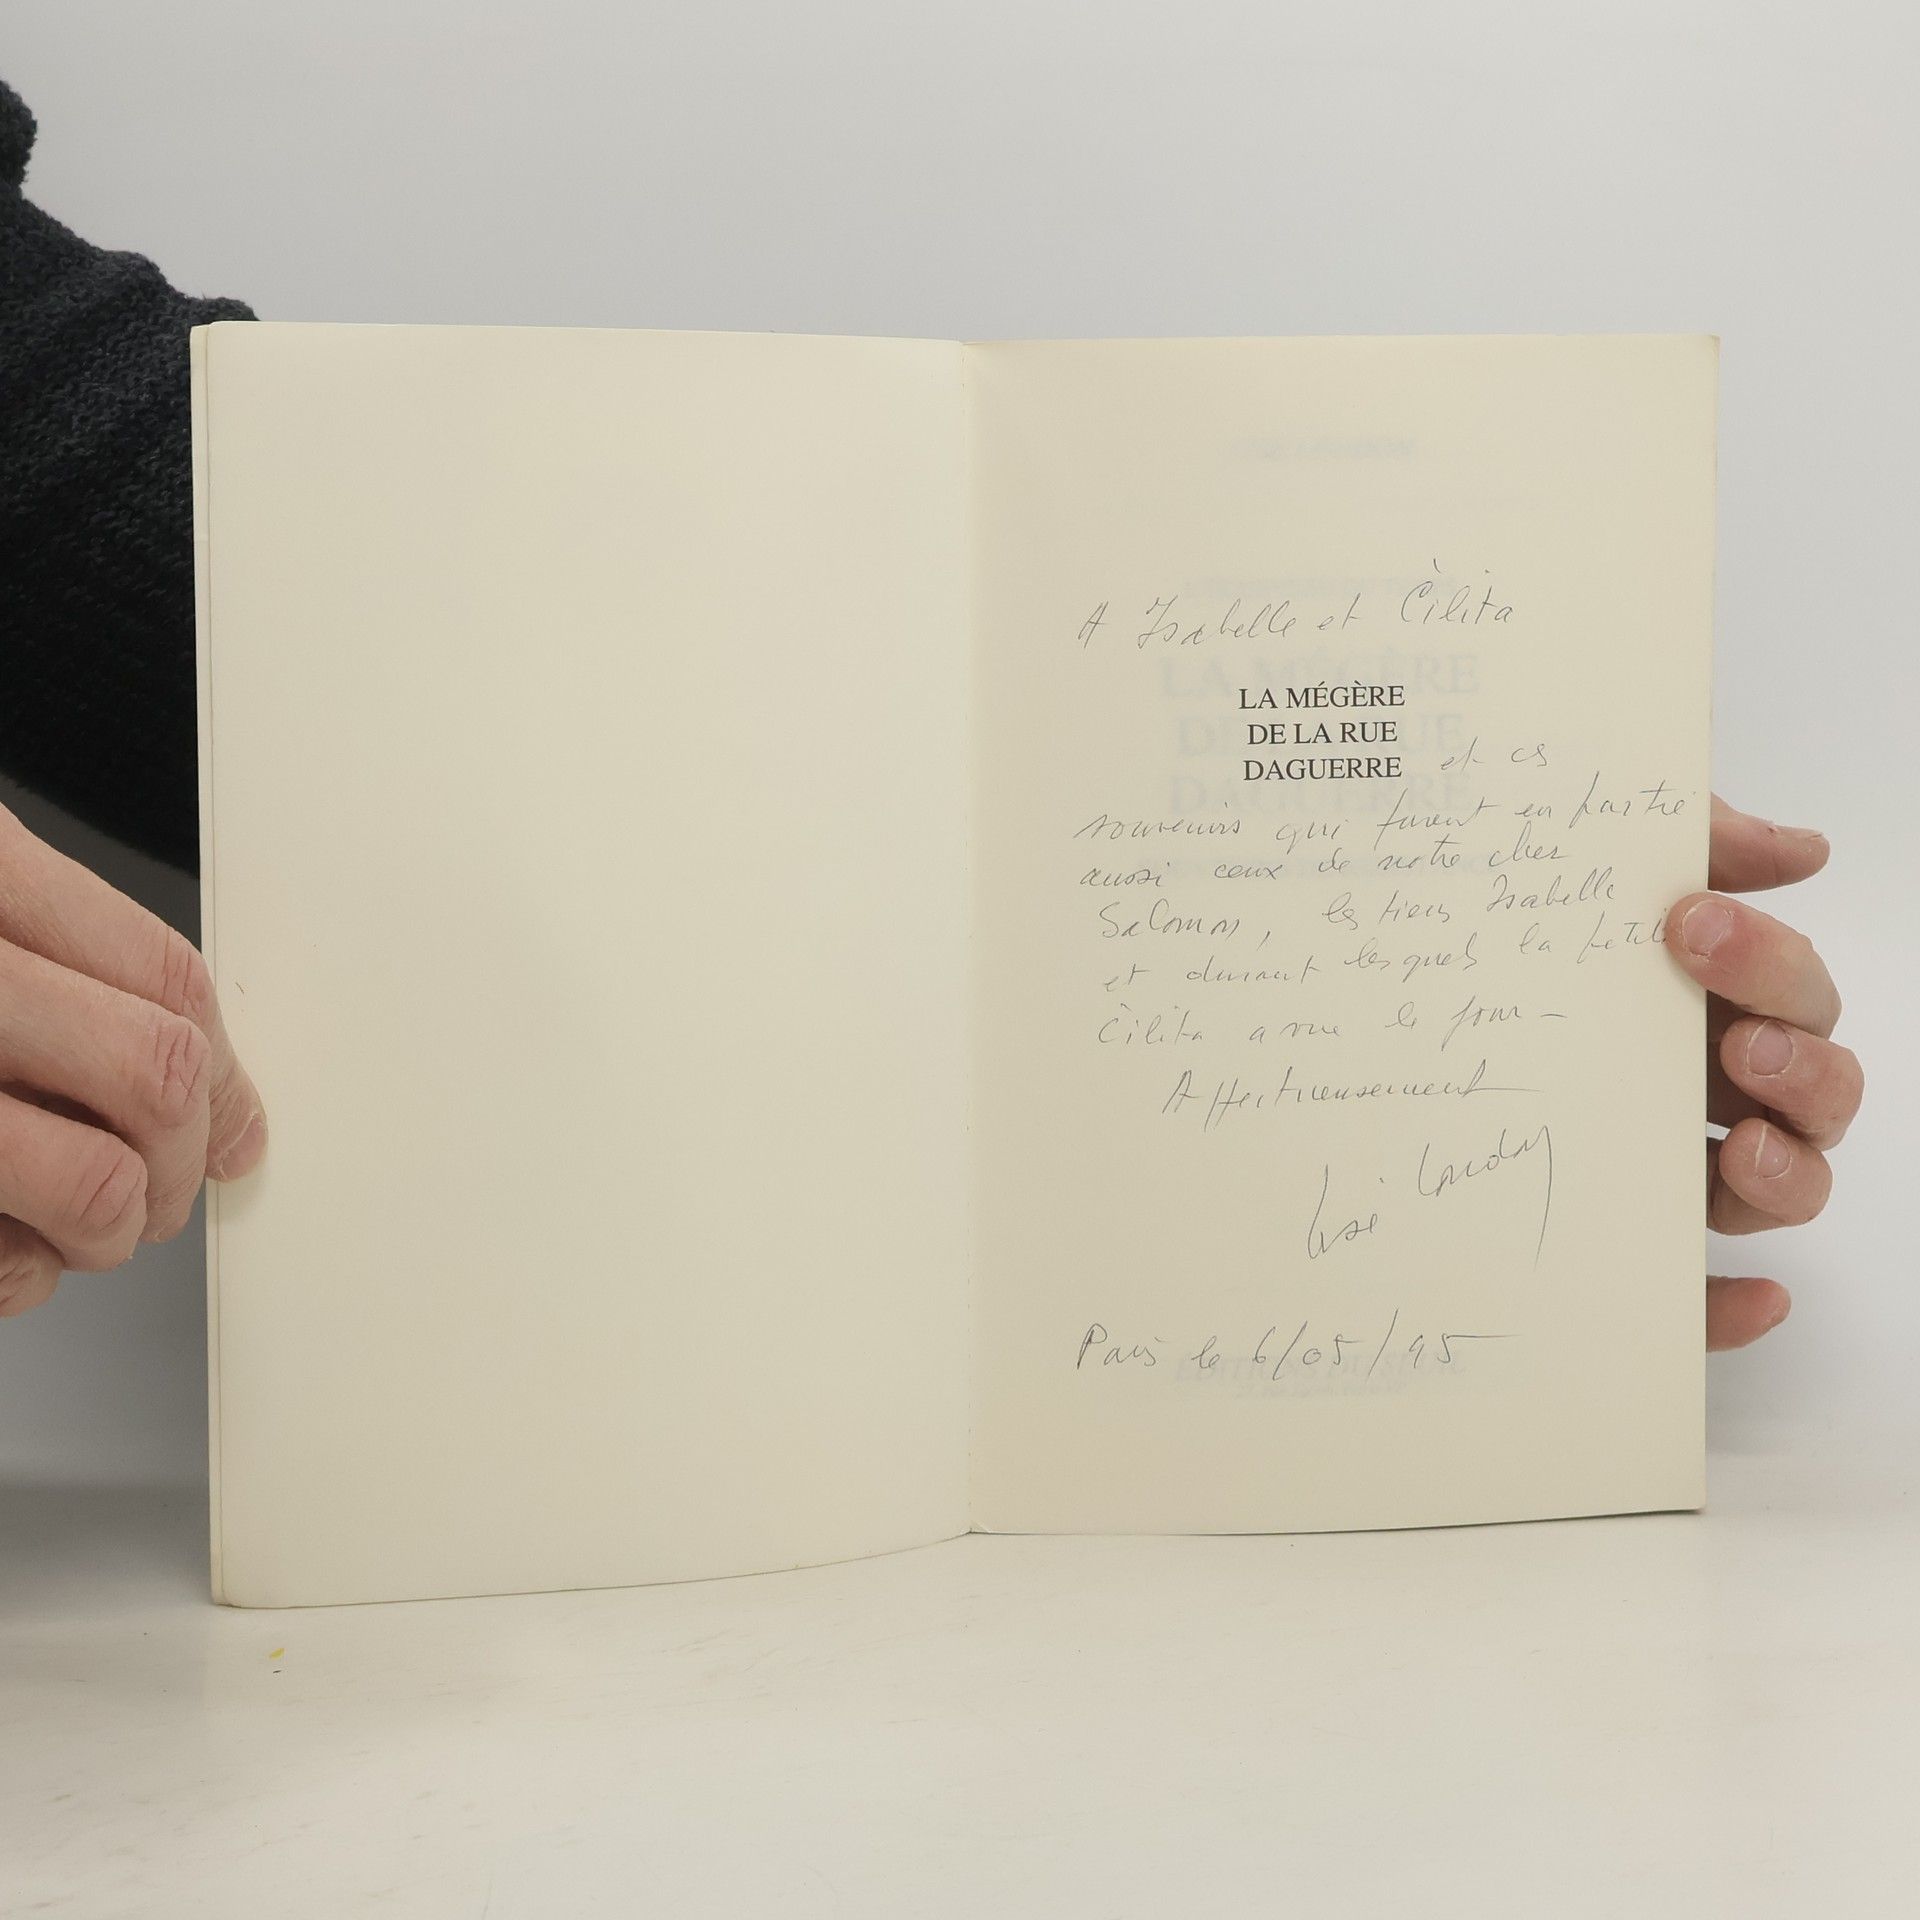 A Isabelle et Cilita
LA MÉGÈRE
DE LA RUE
DAGUERRE et ces
souvenirs qui furent en partie
aussi ceux de notre cher
Salomon, les tiens Isabelle
et durant lesquels la petite
Cilita a vue le jour –
Affectueusement
Lise London
Paris le 6/05/95
LA MÉGÈRE
DE LA RUE
DAGUERRE
ÉDITIONS DU SEUIL